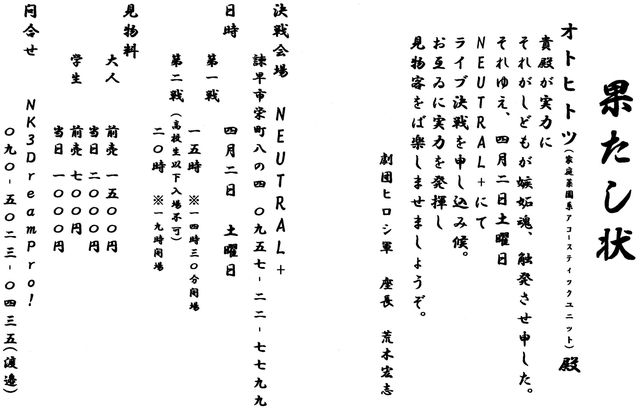 果たし状
オトヒトツ(家庭菜園系アコースティックユニット)殿
貴殿が実力に
それがしどもが嫉妬魂、触発させ申した。
それゆえ、四月二日土曜日
NEUTRAL+にて
ライブ決戦を申し込み候。
お互ゐに実力を発揮し
見物客をば楽しませましょうぞ。
劇団ヒロシ軍 座長 荒木宏志
決戦会場 NEUTRAL+
諫早市栄町八の四 〇九五七-二二-七七九九
日時 四月二日 土曜日
第一戦 一五時 ※一四時三〇分開場
第二戦(高校生以下入場不可)
二〇時 ※一九時開場
見物料
大人 前売 一五〇〇円
当日 二〇〇〇円
学生 前売 七〇〇円
当日 一〇〇〇円
問合せ NK3DreamPro!
〇九〇-五〇二三-〇四三五(渡邉)